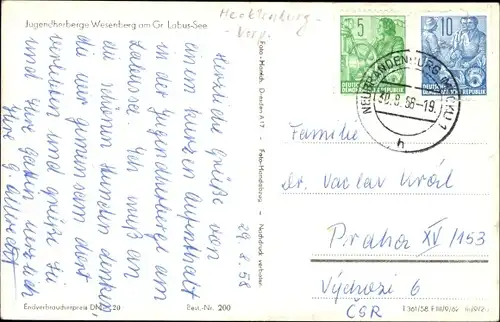 Jugendherberge Wesenberg am Gr. Labus-See
Mecklenburg-
Vorp.
29.8.58
Herzliche Grüße von
einem kurzen Aufenthalt
in der Jugendherberge am
Labussee. Ich muß an
die schönen Stunden denken,
die wir gemeinsam dort
verlebten und grüße Sie
und Ihre Gattin herzlich
Ihre G.
Foto-Handabzug - Nachdruck verboten
Endverbraucherpreis DM 0,20
Best.-Nr. 200
5
DEUTSCHE
DEMOKRATISCHE REPUBLIK
10
DEUTSCHE
DEMOKRATISCHE REPUBLIK
NEUBRANDENBURG (MECKL) 1
30.8.58-19
h
Familie
Dr. Vaclav Král
Praha XV/153
Východní 6
ČSR